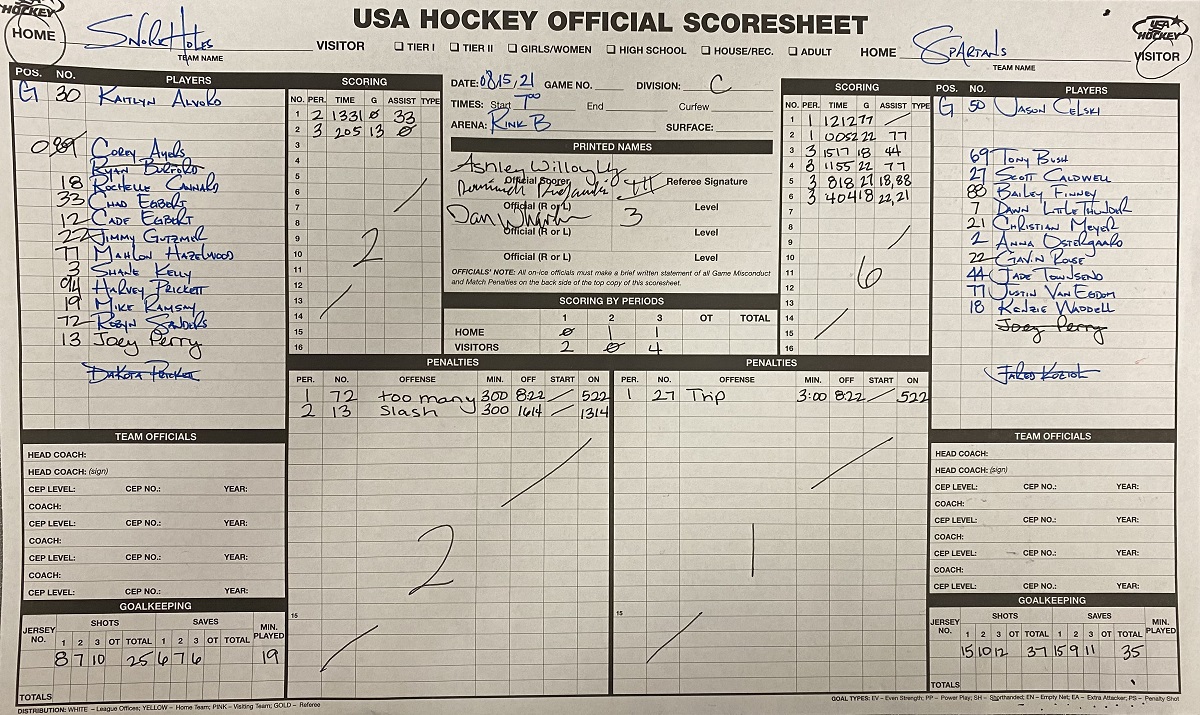 USA HOCKEY OFFICIAL SCORESHEET
HOCKEY
HOME
SnoreHoles
VISITOR
TEAM NAME
☐ TIER I ☐ TIER II ☐ GIRLS/WOMEN ☐ HIGH SCHOOL ☐ HOUSE/REC. ☐ ADULT
HOME
Spartans
TEAM NAME
USA HOCKEY
VISITOR
POS. NO. PLAYERS
G 30 Kaitlyn Alvord
Corey Ayers
Ryan Burford
18 Rochelle Cannard
33 Chad Egbert
12 Cade Egbert
22 Jimmy Gutzmer
77 Mahlon Hazelwood
3 Shane Kelly
94 Harvey Prickett
19 Mike Ramsay
72 Robyn Sanders
13 Joey Perry
Dakota Prickett
SCORING
NO. PER. TIME G ASSIST TYPE
1 2 1331 0 33
2 3 205 13 0
3
4
5
6
7
8
9
10
11
12
13
14
15
16
2
DATE: 08/15/21 GAME NO. DIVISION: C
TIMES: Start 7:00 End Curfew
ARENA: Rink B SURFACE:
PRINTED NAMES
Ashley Willoughby
Official Scorer Referee Signature
III
Official (R or L) Level
Dan 3
Official (R or L) Level
Official (R or L) Level
OFFICIALS' NOTE: All on-ice officials must make a brief written statement of all Game Misconduct
and Match Penalties on the back side of the top copy of this scoresheet.
SCORING BY PERIODS
1 2 3 OT TOTAL
HOME 0 1 1
VISITORS 2 0 4
SCORING
NO. PER. TIME G ASSIST TYPE
1 1 1212 77
2 1 0052 22 77
3 3 1517 18 44
4 3 1155 22 77
5 3 818 21 18,88
6 3 404 18 22,21
7
8
9
10
11
12
13
14
15
16
6
POS. NO. PLAYERS
G 50 Jason Celski
69 Tony Bush
27 Scott Caldwell
88 Bailey Finney
7 Dawn LittleThunder
21 Christian Meyer
2 Anna Ostergaard
22 Gavin Rouse
44 Jade Townsend
77 Justin Van Egdom
18 Kenzie Waddell
Joey Perry
Jared Koziol
PENALTIES
PER. NO. OFFENSE MIN. OFF START ON
1 72 too many 300 8:22 522
2 13 Slash 300 1614 1314
2
15
PENALTIES
PER. NO. OFFENSE MIN. OFF START ON
1 27 Trip 3:00 8:22 522
1
15
TEAM OFFICIALS
HEAD COACH:
HEAD COACH: (sign)
CEP LEVEL: CEP NO.: YEAR:
COACH:
CEP LEVEL: CEP NO.: YEAR:
COACH:
CEP LEVEL: CEP NO.: YEAR:
COACH:
CEP LEVEL: CEP NO.: YEAR:
GOALKEEPING
JERSEY NO. SHOTS SAVES MIN. PLAYED
1 2 3 OT TOTAL 1 2 3 OT TOTAL
8 7 10 25 6 7 6 19
TOTALS
TEAM OFFICIALS
HEAD COACH:
HEAD COACH: (sign)
CEP LEVEL: CEP NO.: YEAR:
COACH:
CEP LEVEL: CEP NO.: YEAR:
COACH:
CEP LEVEL: CEP NO.: YEAR:
COACH:
CEP LEVEL: CEP NO.: YEAR:
GOALKEEPING
JERSEY NO. SHOTS SAVES MIN. PLAYED
1 2 3 OT TOTAL 1 2 3 OT TOTAL
15 10 12 37 15 9 11 35
TOTALS
DISTRIBUTION: WHITE – League Offices; YELLOW – Home Team; PINK – Visiting Team; GOLD – Referee
GOAL TYPES: EV – Even Strength; PP – Power Play; SH – Shorthanded; EN – Empty Net; EA – Extra Attacker; PS – Penalty Shot